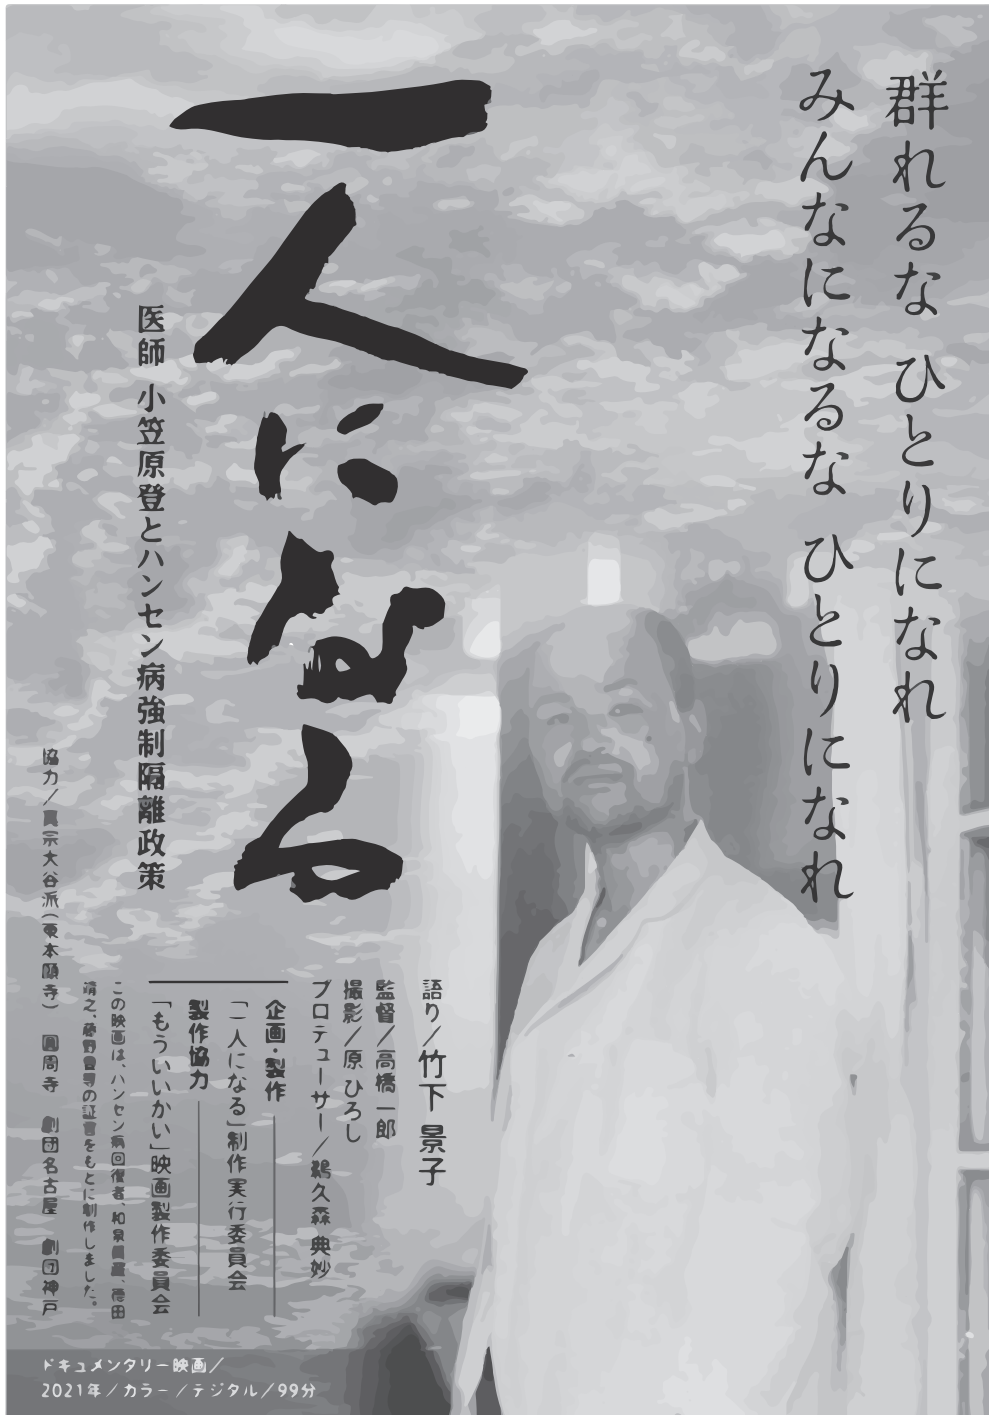 群れるな ひとりになれ
みんなになるな ひとりになれ
一人になる
医師 小笠原登とハンセン病強制隔離政策
語り／竹下景子
監督／高橋一郎
撮影／原ひろし
プロデューサー／鵜久森典妙
企画・製作
「一人になる」制作実行委員会
製作協力
「もういいかい」映画製作委員会
この映画は、ハンセン病回復者、和泉眞藏、徳田
靖之、藤野豊等の証言をもとに創作しました。
協力／真宗大谷派（東本願寺） 圓周寺 劇団名古屋 劇団神戸
ドキュメンタリー映画／
2021年／カラー／デジタル／99分